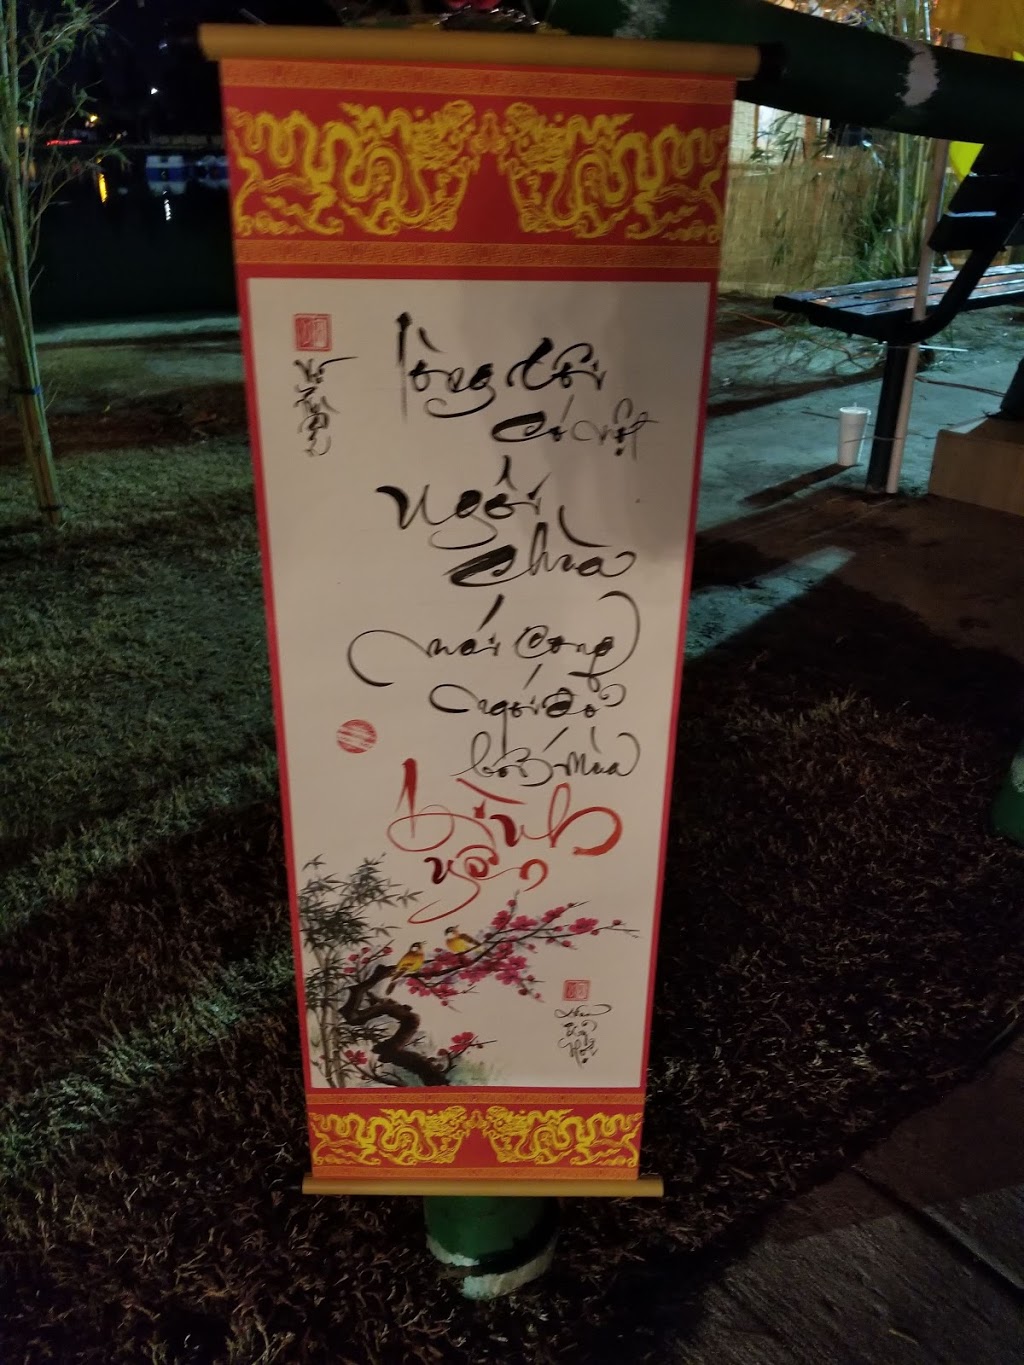 lòng tôi
có một
ngôi
chùa
mái cong
ngói đỏ
bốn mùa
bình
yên